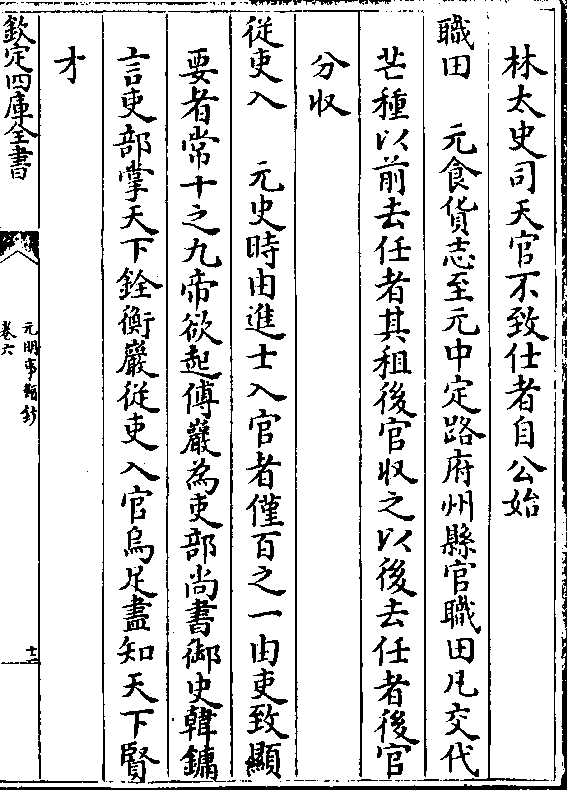 林太史司天官不致仕者自公始
職田　元食貨志至元中定路府州縣官職田凡交代
芒種以前去任者其租後官収之以後去任者後官
分収
從吏入　元史時由進士入官者僅百之一由吏致顯
要者常十之九帝欲起傅巖為吏部尚書御史韓鏞
言吏部掌天下銓衡巖從吏入官烏足盡知天下賢
才
欽定四庫全書
元明事類鈔
卷六
十二